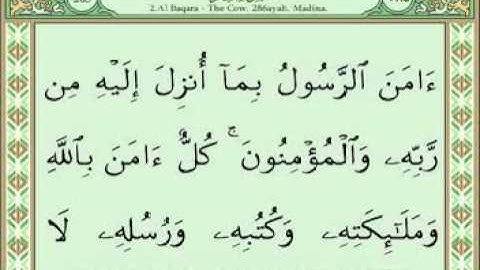 2.Al Baqara - The Cow. 286ayah. Madina.
ءَامَنَ ٱلرَّسُولُ بِمَآ أُنزِلَ إِلَيۡهِ مِن
رَّبِّهِۦ وَٱلۡمُؤۡمِنُونَۚ كُلٌّ ءَامَنَ بِٱللَّهِ
وَمَلَٰٓئِكَتِهِۦ وَكُتُبِهِۦ وَرُسُلِهِۦ لَا